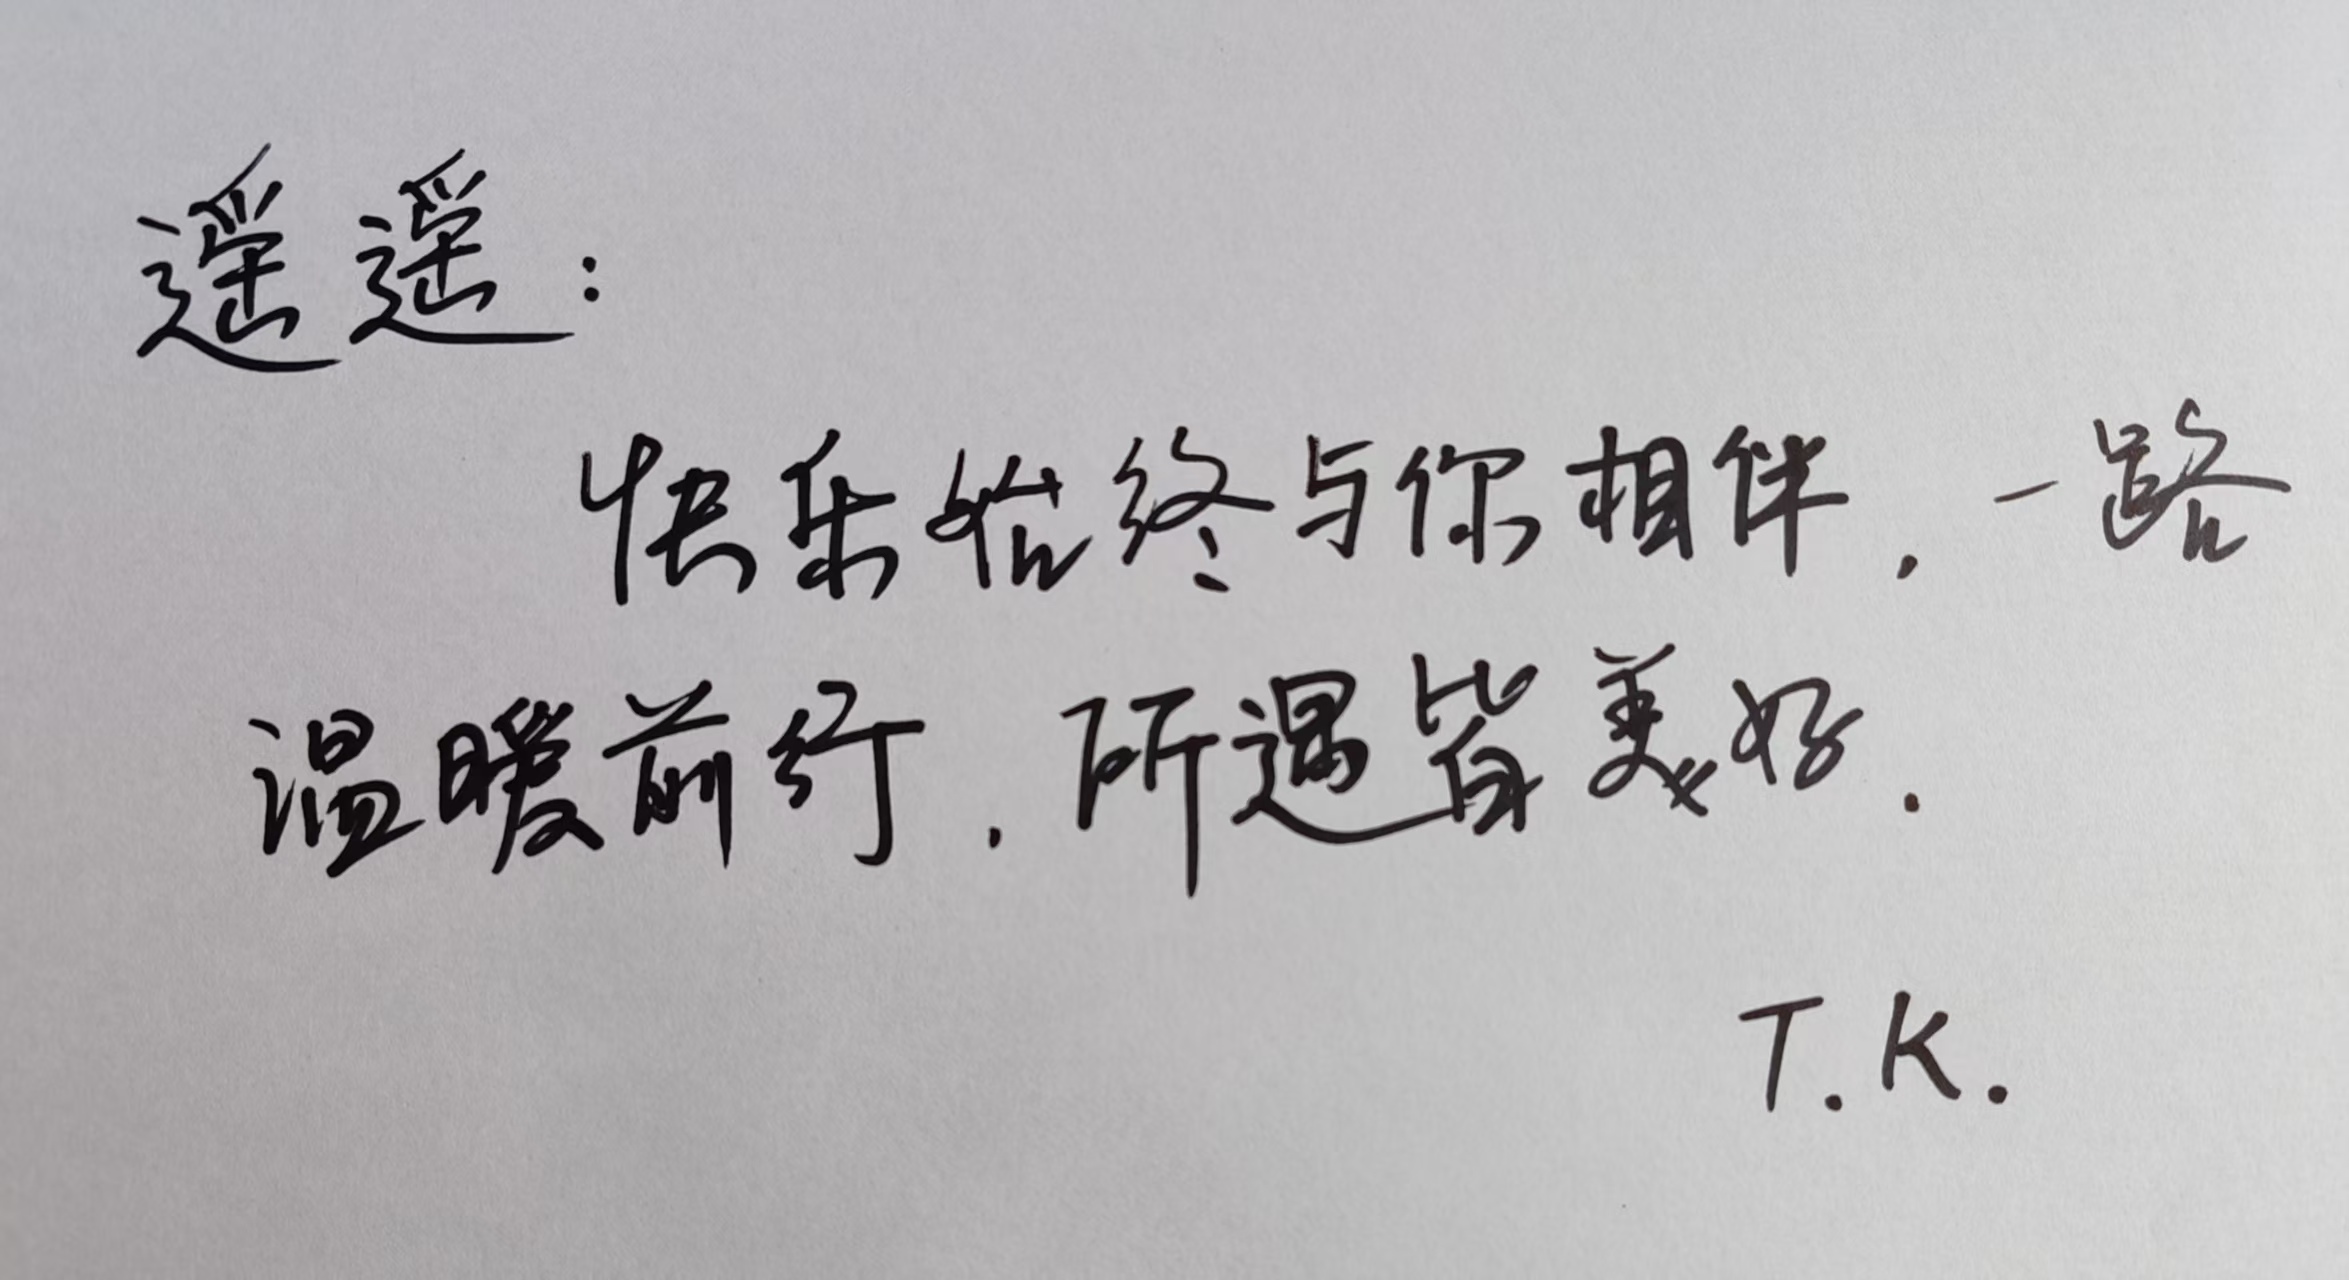 遥遥：
快乐始终与你相伴．一路
温暖前行．所遇皆美好．
T.K.